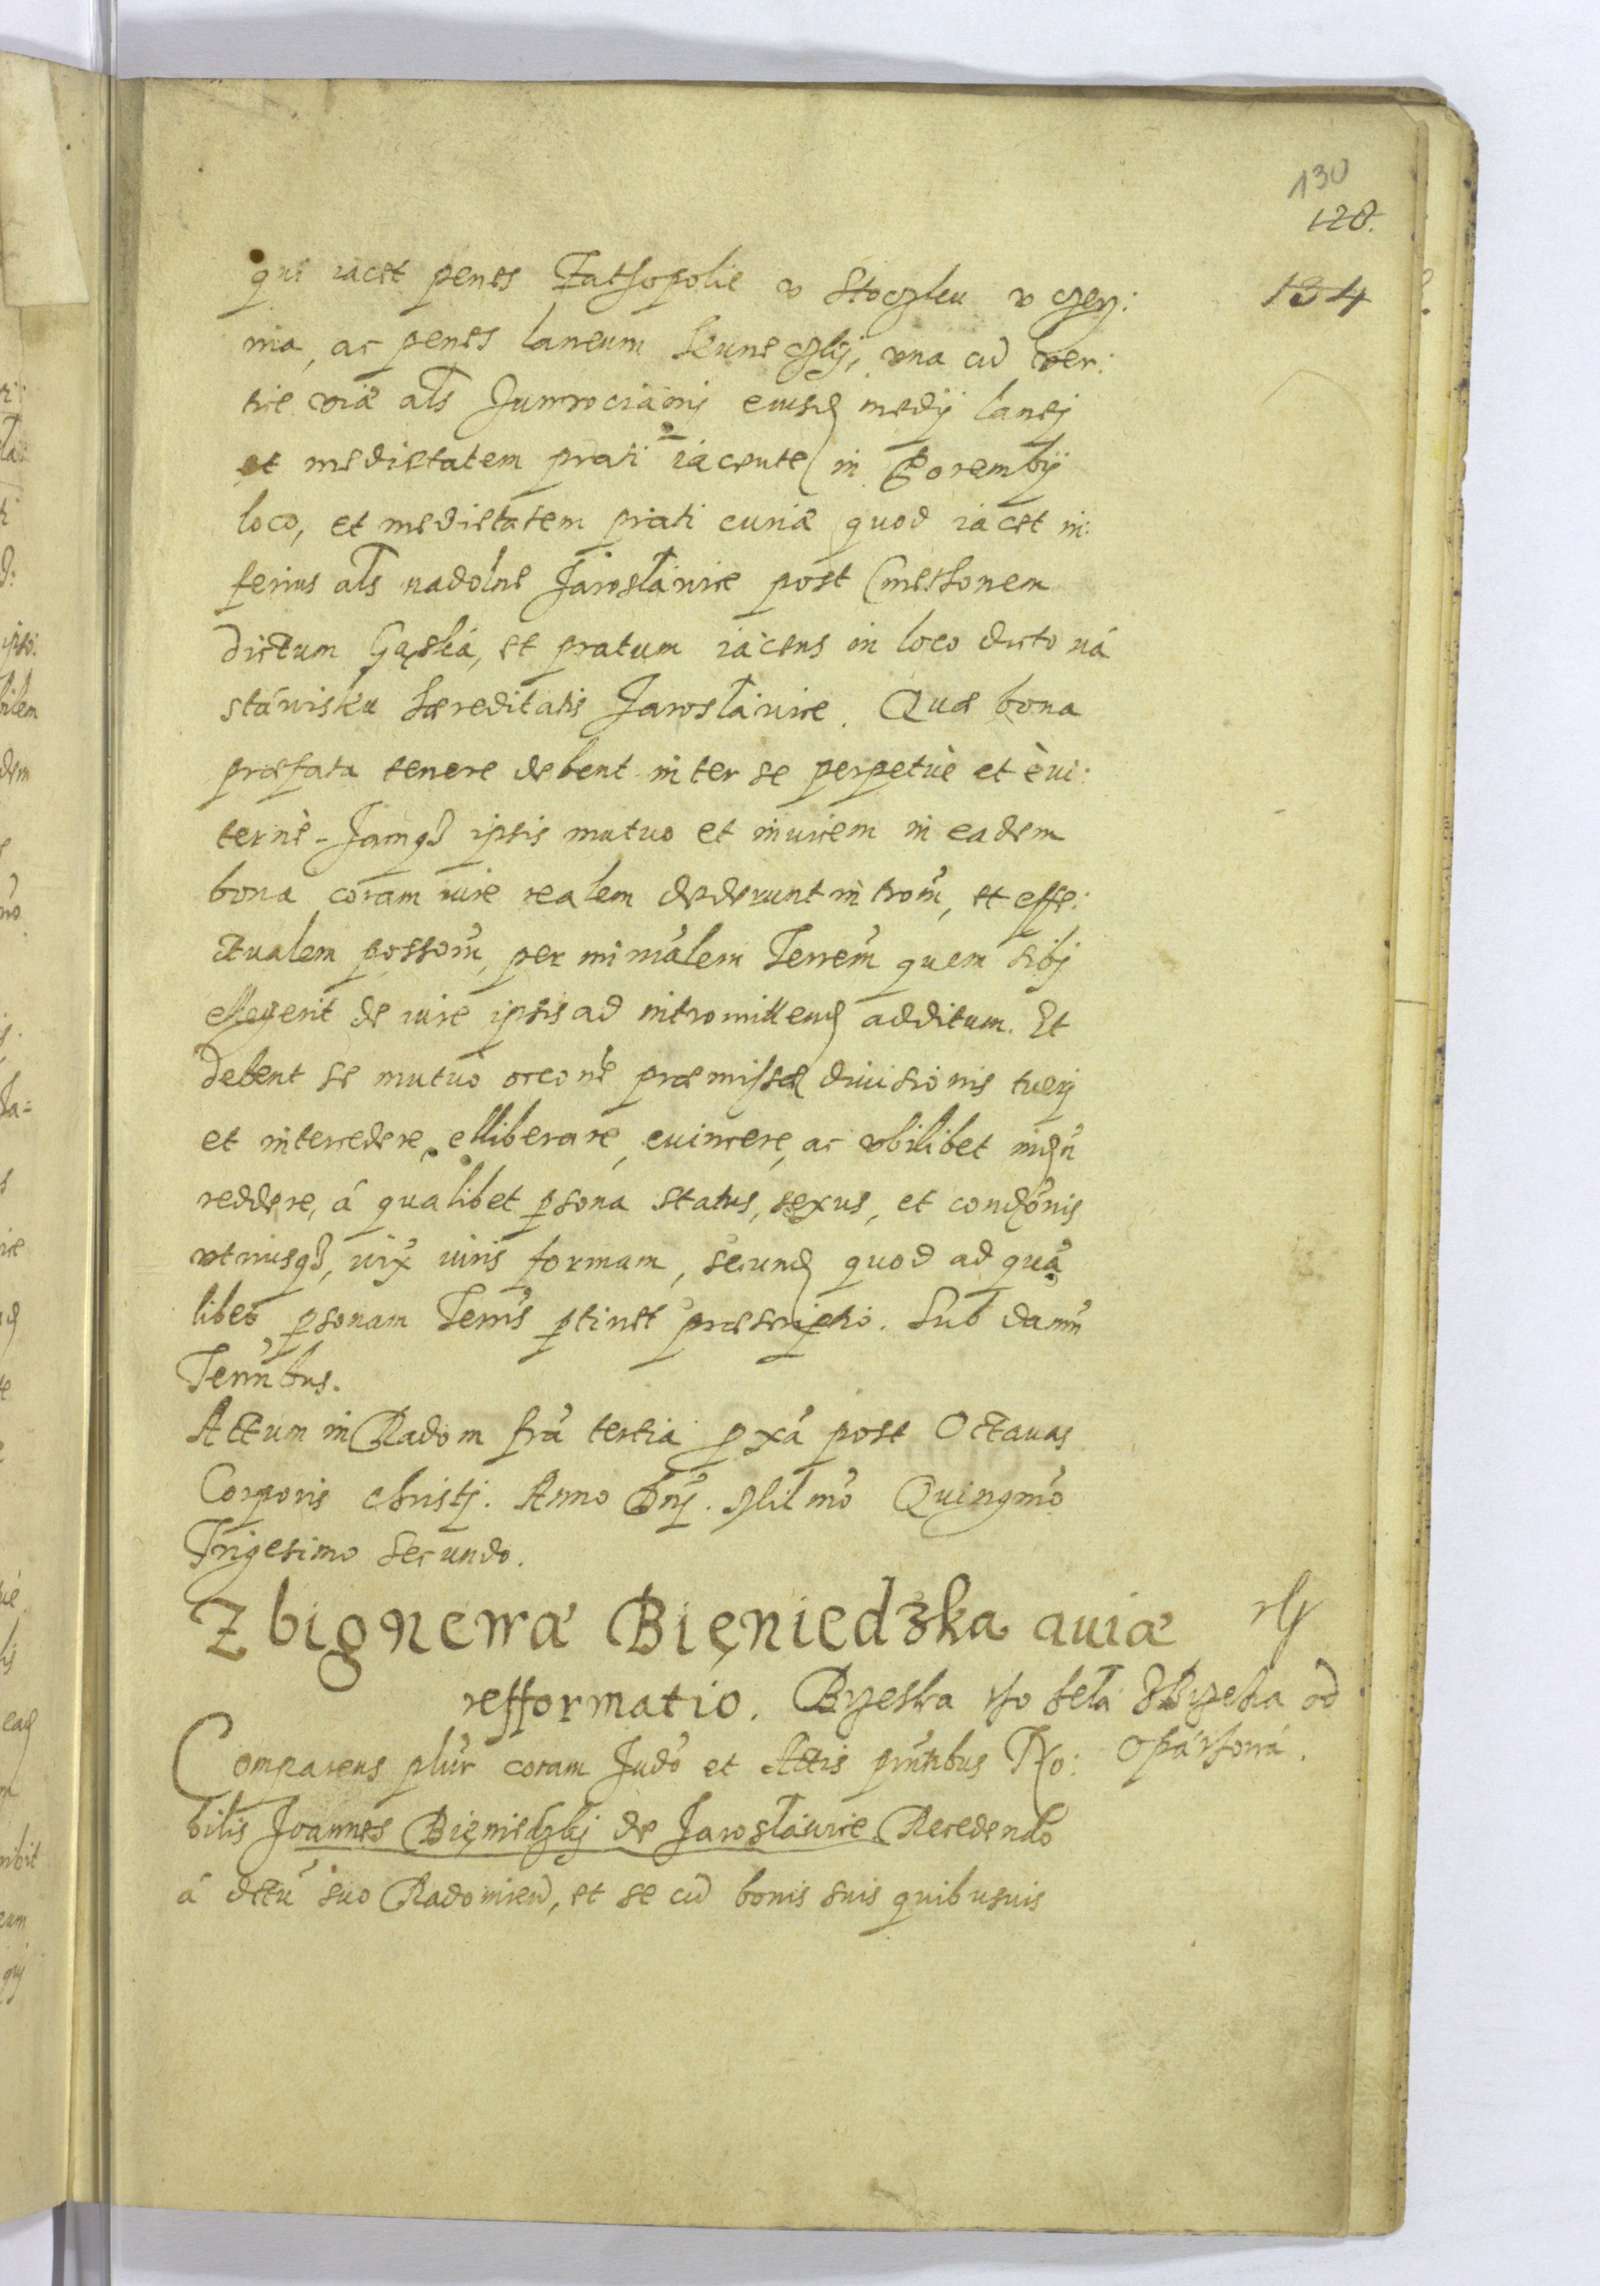 130
128.
134
qui iacet penes Zathopolie w Stoczku w czer:
nia, ac penes laneum Seuneczkj, vna cũ ver:
tice viæ als Junwrocianij eiusd medij lanej
et medietatem prati iacente in Porembij
loco, et medietatem prati curiæ quod iacet in:
ferius als nadolne Jarosławice post Cmethonem
dictum Gęska, et pratum iacens in loco dicto ná
stáwisku hæreditatis Jarosławice. Quæ bona
præfata tenere debent inter se perpetuè et èui:
ternè - Jamq3 ipsis mutuo et inuicem in eadem
bona coram iure realem dederunt introm̃, et effe:
ctualem possom̃, per minr̃alem Terrem̃ quem sibj
ellegerit de iure ipsis ad intromittend additum. Et
debent se mutuo orõne præmissæ diuisionis tuerj
et intercedere, elliberare, euincere, ac vbilibet indẽn
reddere, á qualibet psona status, sexus, et condõnis
vtriusq3, iux iuris formam, secund quod ad quã
libet psonam Terris ptinet præscriptio. Sub damñ
Terrñbus.
Actum in Radom fr̃a tertia pxá post Octauas
Corporis christj. Anno Dn̄j. Mil mõ Quingmõ
Trigesimo secundo.
Zbignewa Bięniedzka auiæ
refformatio. Brzeska
Comparens plũr coram Judõ et Actis prñtibus No:
bilis Joannes Bięniedzkj de Jarosławice Recedendo
á dctũ suo Radomien, et se cũ bonis suis quibusuis